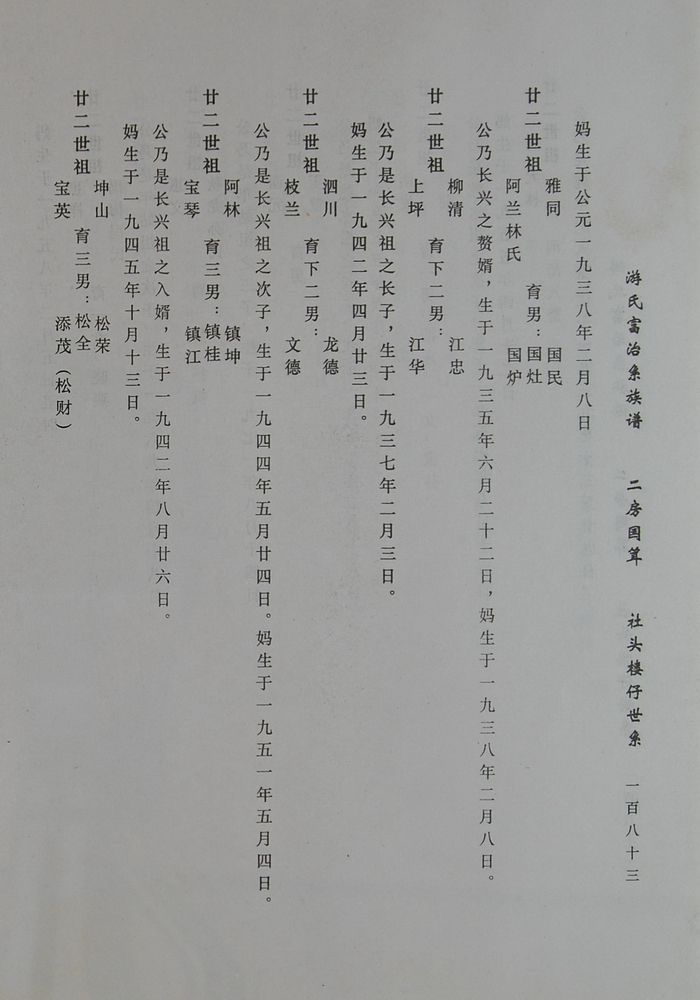 游氏富治系族谱 二房国箕 社头楼仔世系 一百八十三
妈生于公元一九三八年二月八日
廿二世祖 雅同 阿兰林氏 育男：国民 国灶 国炉
公乃长兴之赘婿，生于一九三五年六月二十二日，妈生于一九三八年二月八日。
廿二世祖 柳清 上坪 育下二男： 江忠 江华
公乃是长兴祖之长子，生于一九三七年二月三日。
妈生于一九四二年四月廿三日。
廿二世祖 泗川 枝兰 育下二男： 龙德 文德
公乃是长兴祖之次子，生于一九四四年五月廿四日。妈生于一九五一年五月四日。
廿二世祖 阿林 宝琴 育三男： 镇坤 镇桂 镇江
公乃是长兴祖之入婿，生于一九四二年八月廿六日。
妈生于一九四五年十月十三日。
廿二世祖 坤山 宝英 育三男： 松荣 松全 添茂（松财）